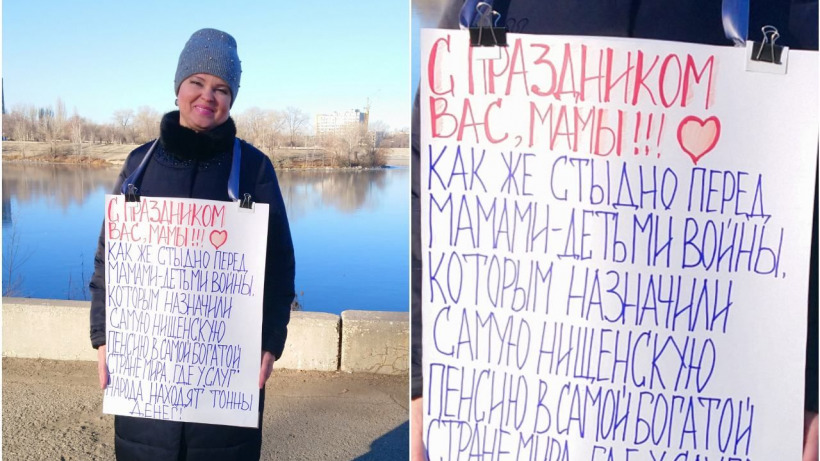 С ПРАЗДНИКОМ
ВАС, МАМЫ!!!
КАК ЖЕ СТЫДНО ПЕРЕД
МАМАМИ-ДЕТЬМИ ВОЙНЫ,
КОТОРЫМ НАЗНАЧИЛИ
САМУЮ НИЩЕНСКУЮ
ПЕНСИЮ В САМОЙ БОГАТОЙ
СТРАНЕ МИРА, ГДЕ У „СЛУГ"
НАРОДА НАХОДЯТ ТОННЫ
ДЕНЕГ!
С ПРАЗДНИКОМ
ВАС, МАМЫ!!!
КАК ЖЕ СТЫДНО ПЕРЕД
МАМАМИ-ДЕТЬМИ ВОЙНЫ,
КОТОРЫМ НАЗНАЧИЛИ
САМУЮ НИЩЕНСКУЮ
ПЕНСИЮ В САМОЙ БОГАТОЙ
СТРАНЕ МИРА, ГДЕ У „СЛУГ"